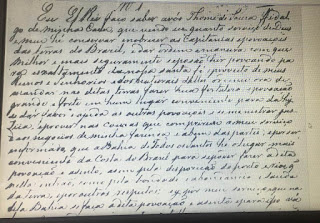 Nº 1
Eu El Rei faço saber a vós Thomé de Souza Fidal
go de minha Casa que vendo eu quanto serviço de Deos
e meu he conservar e enobrecer as Capitanias e povoações
das terras do Brazil, e dar ordem e maneira com que
melhor e mais seguramente se possão hir povoando pa
ra exalçamento da nossa santa fé e proveito de meus
Reinos e Senhorios e dos naturaes delles ordenei ora de
mandar nas ditas terras fazer huma fortaleza e povoação
grande e forte em hum lugar conveniente para dahi se
dar favor e ajuda ás outras povoações e se ministrar jus
tiça e prover nas cousas que cumprem a meu serviço
e aos negocios de minha fazenda e a bem das partes; e por ser
informado que a Bahia de Todos os Santos he o lugar mais
conveniente da Costa do Brazil para se poder fazer a dita
povoação e assento, assim pela disposição do porto e rios que
nella entrão, como pela bondade abastança e saude
da terra, e por outros respeitos, hei por meu serviço que na
dita Bahia se faça a dita povoação e assento e para isso vá